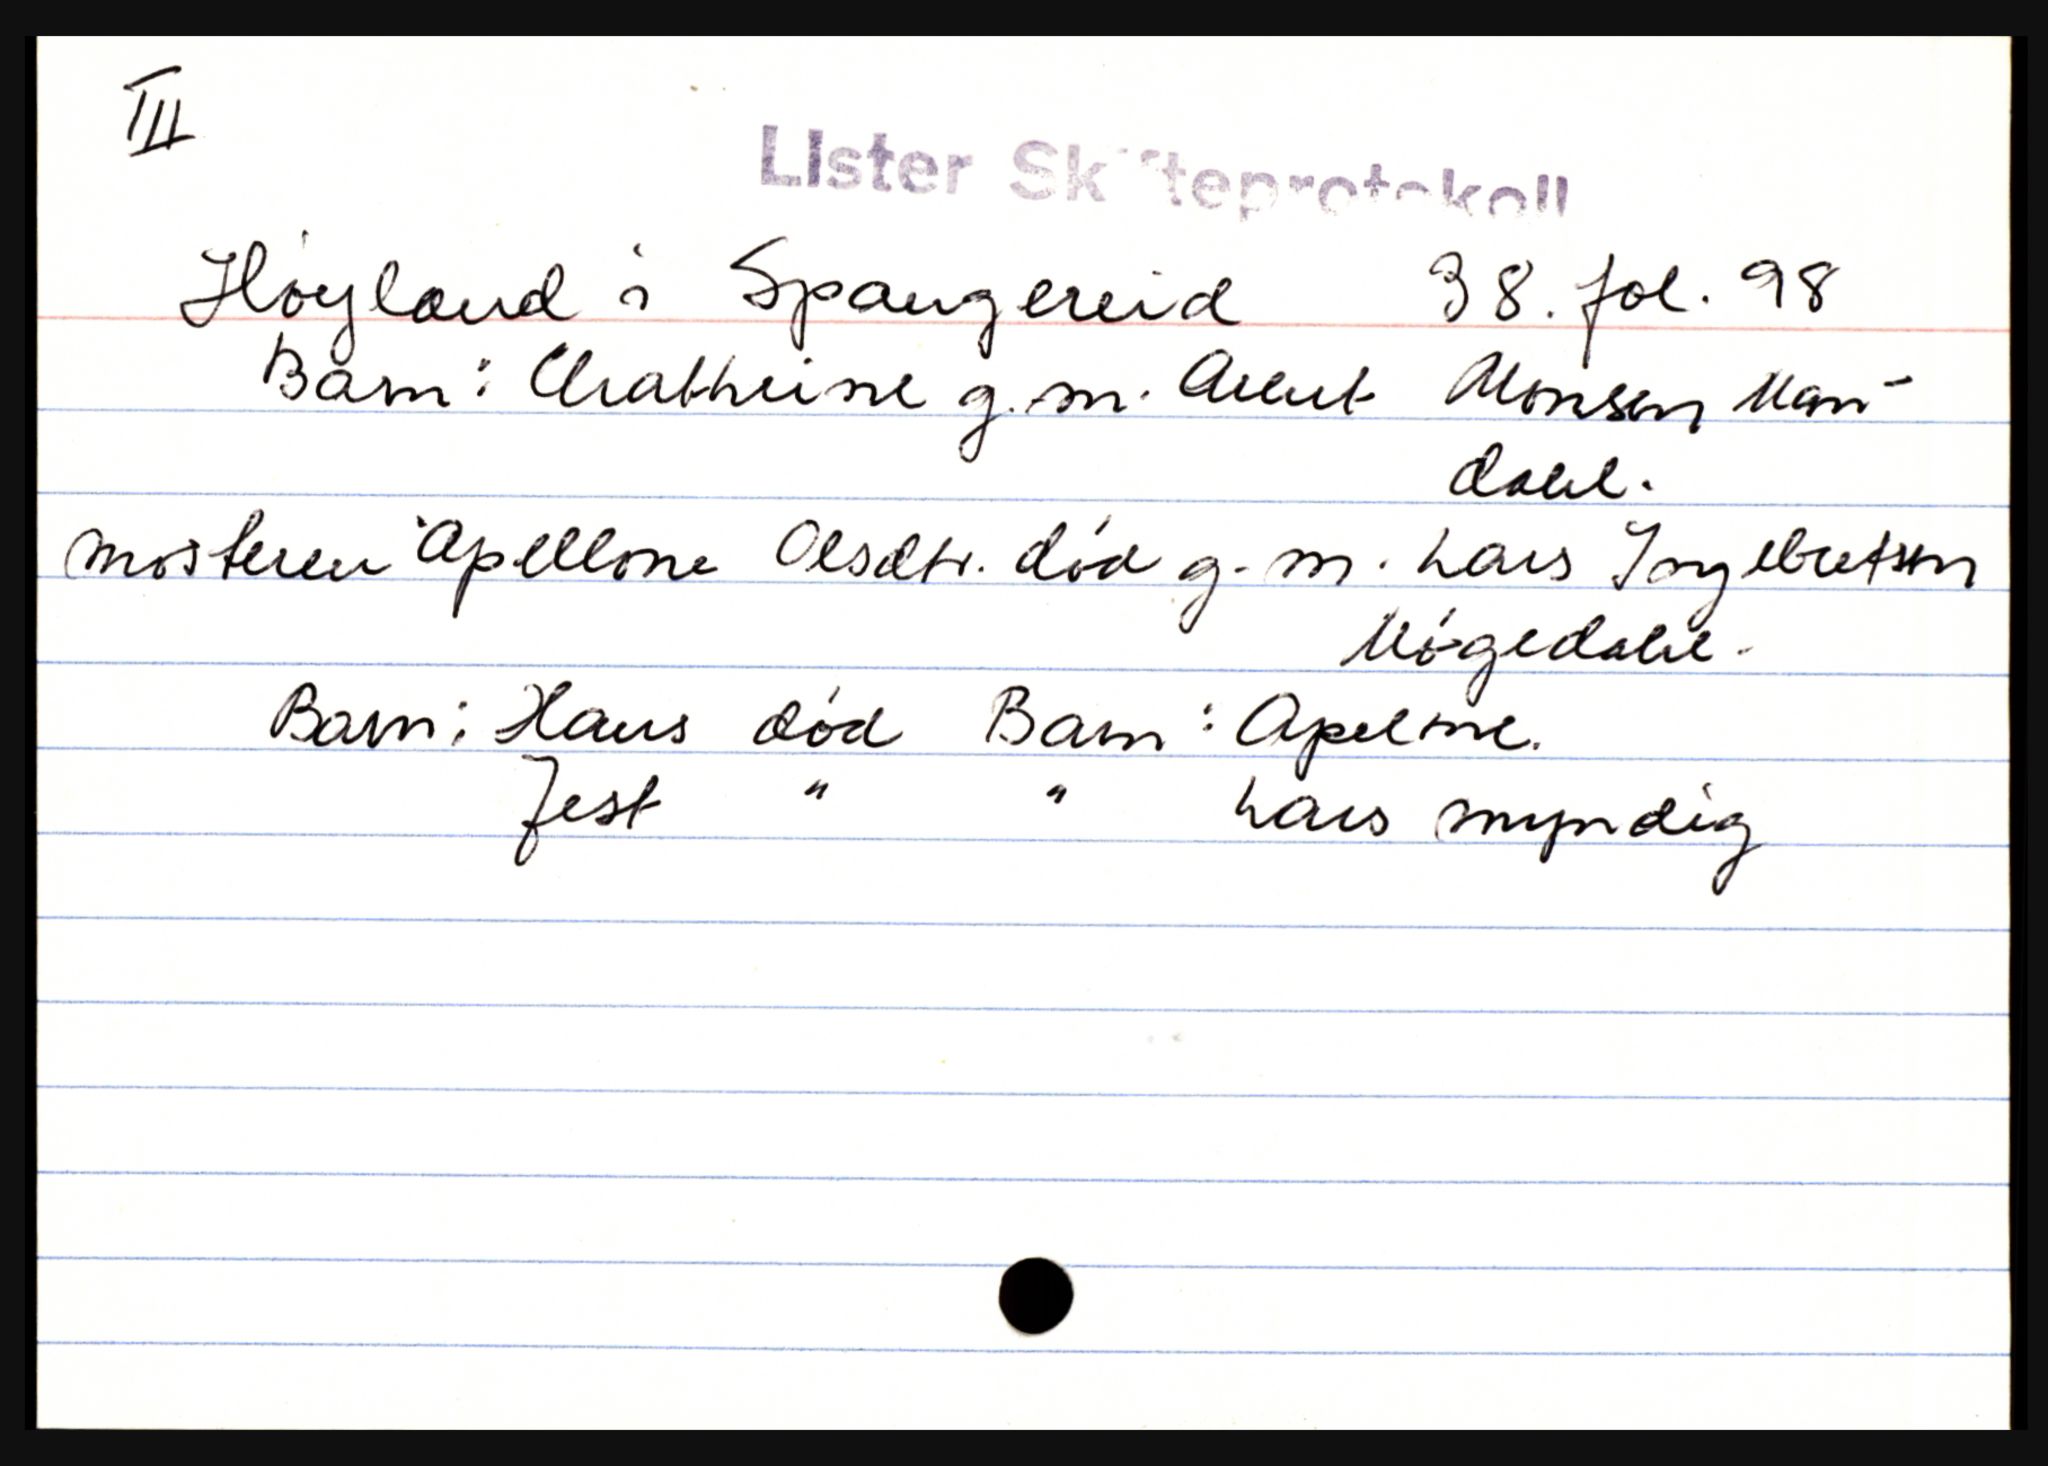 III
LIster Skifteprotokoll
Høyland i Spangereid 38. fol. 98
Barn: Chathrine g. m. Arent Monsen Man-
dahl.
mosteren Apellone Olsdtr. død g. m. Lars Ingebretsen
Møgedahl.
Barn: Hans død Barn: Apelone.
Jest " " Lars myndig